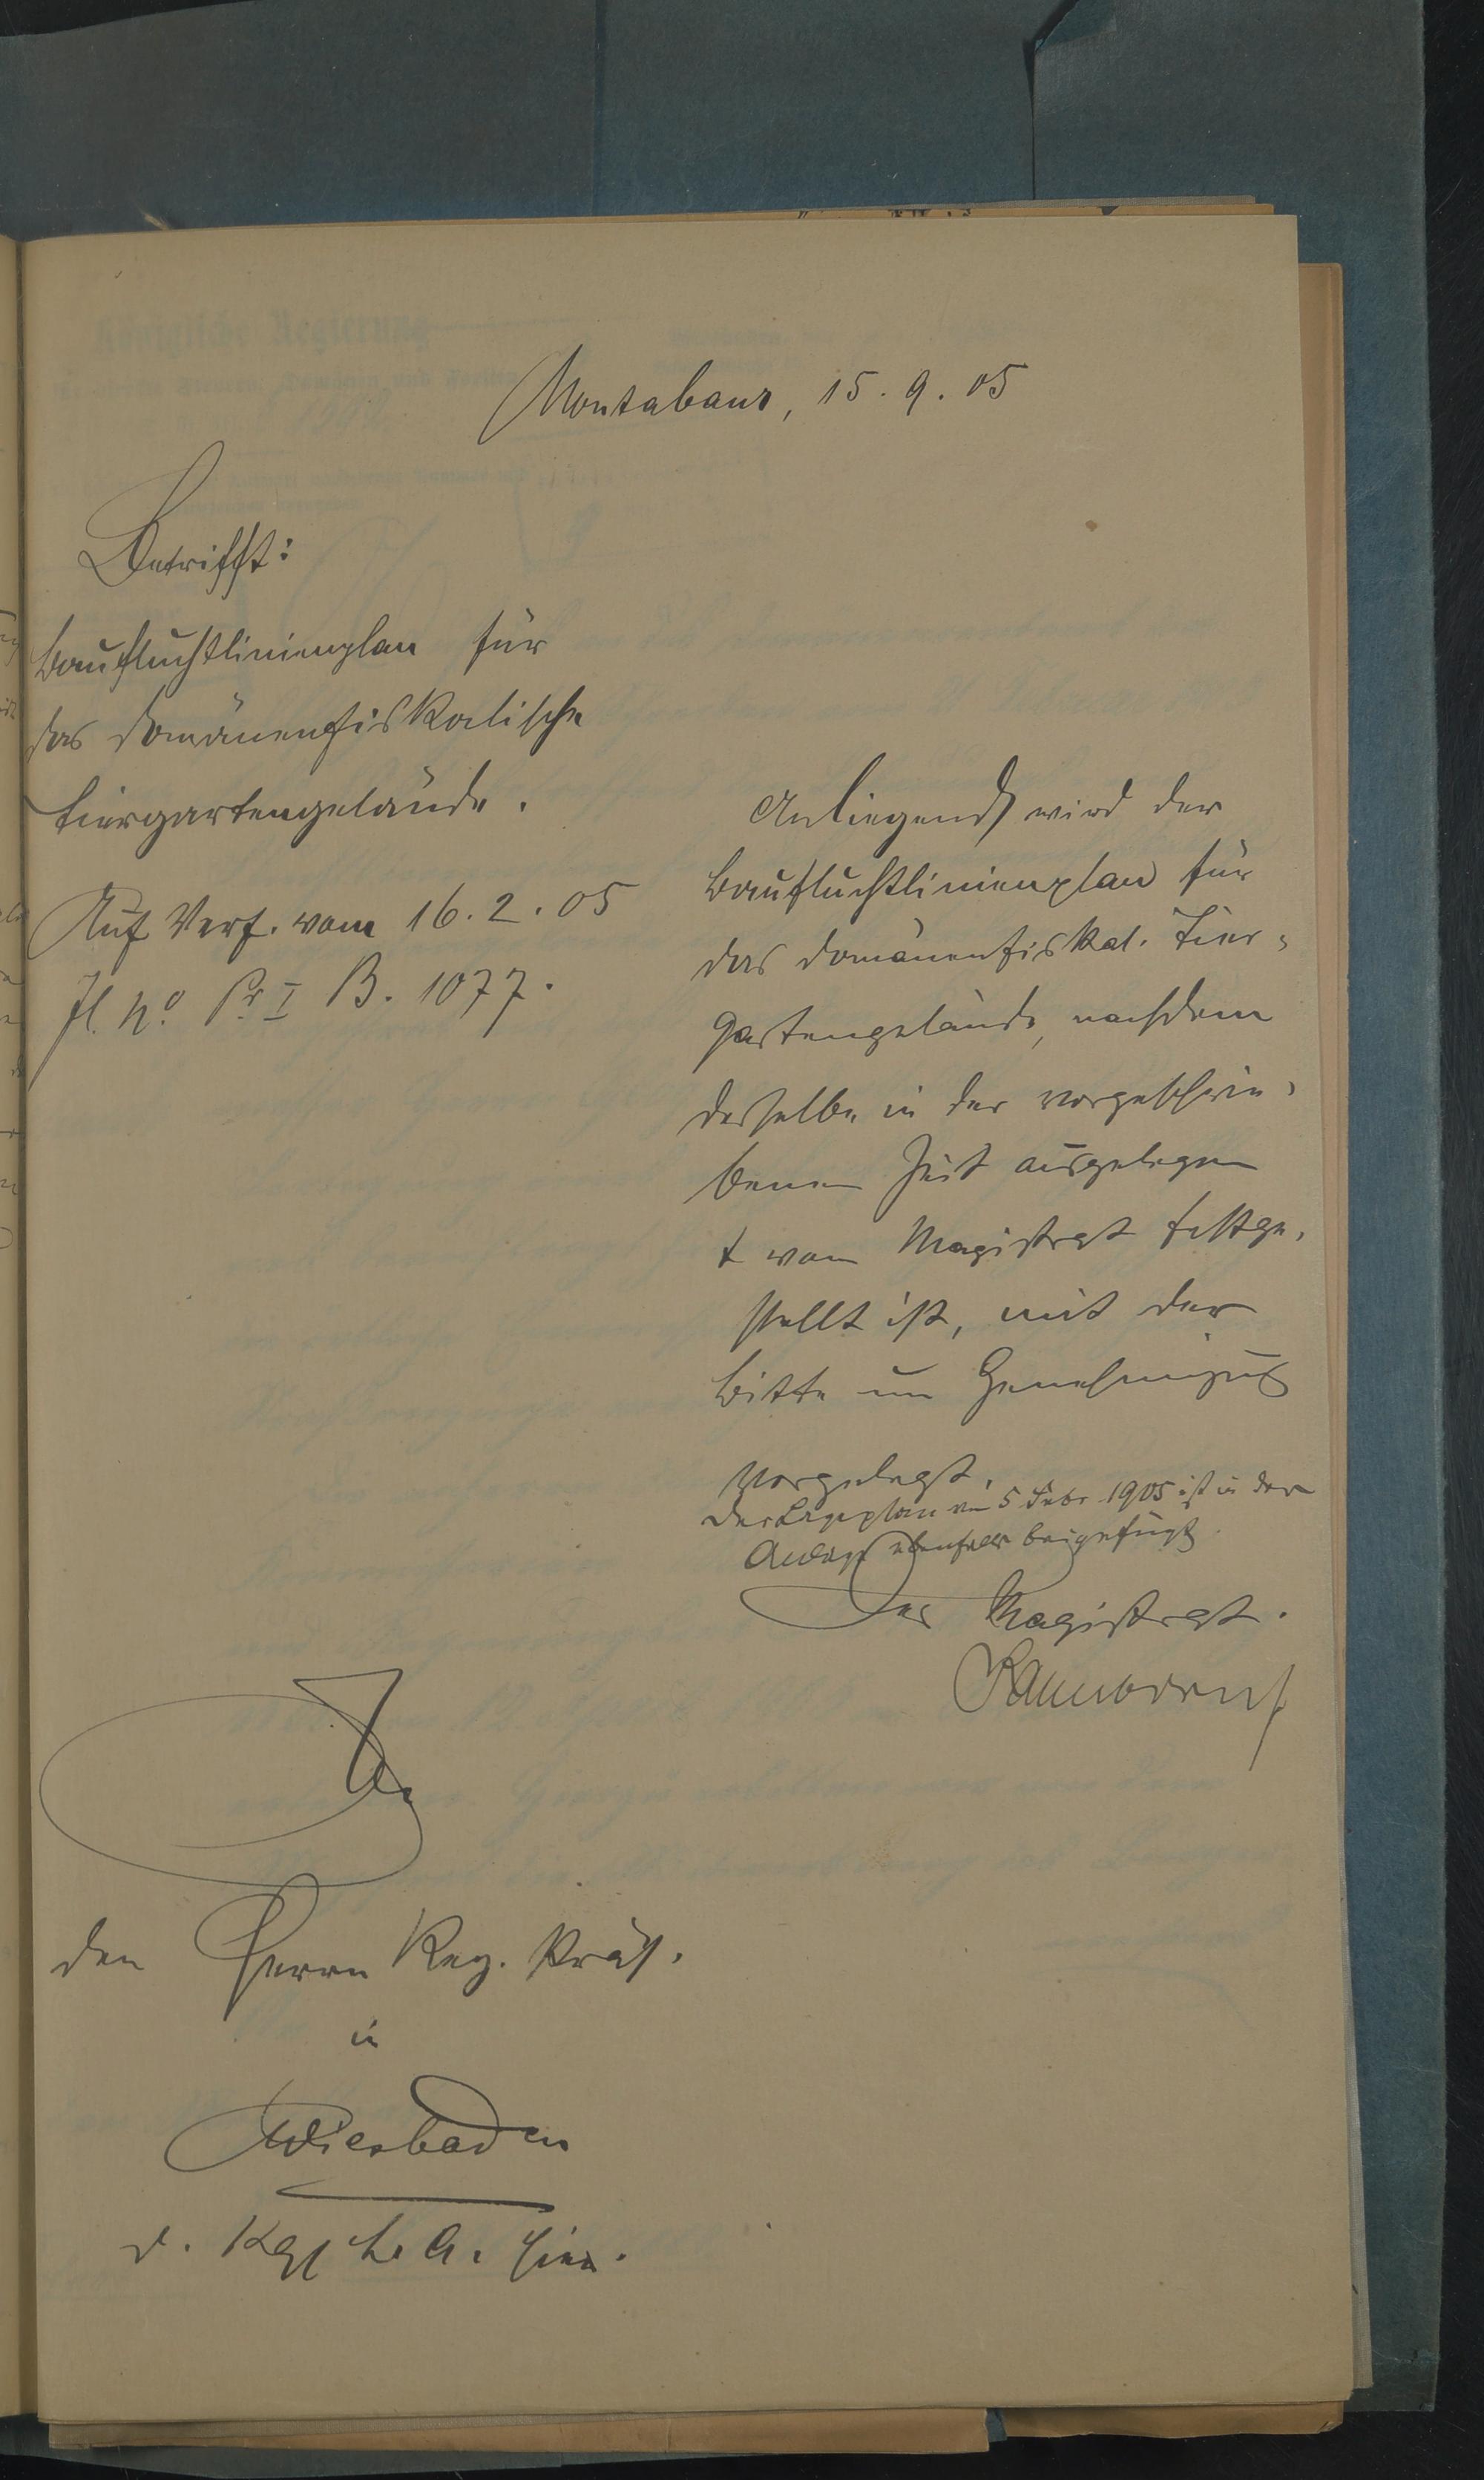 Montabaur, 15. 9. 05
Betrifft:
Baufluchtlinienplan für
das domänenfiskalische
Tiergartengelände.
Auf Verf. vom 16. 2. 05
Jl. No Pr. I B. 1077.
Anliegend wird der
Baufluchtlinienplan für
das domänenfiskal. Tier-
gartengelände, nachdem
derselbe in der vorgeschrie-
benen Zeit ausgelegen
+ vom Magistrat festge-
stellt ist, mit der
Bitte um Genehmigung
vorgelegt.
Der Lageplan vom 5 Febr 1905 ist in der
Anlage ebenfalls beigefügt.
Der Magistrat.
An
den Herrn Reg. Präs.
in
Wiesbaden
d. Kgl L. A. hier.